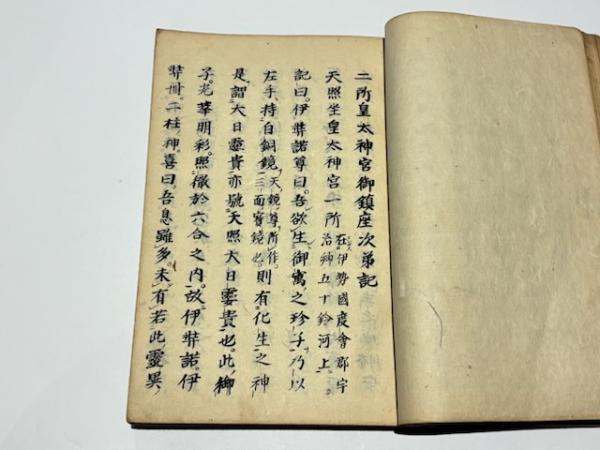 二所皇太神宮御鎮座次弟記
天照坐皇太神宮一所在伊勢國度會郡宇治神五十鈴河上
記曰。伊弉諾尊曰。吾欲生御㝢之珍子。乃以
左手持白銅鏡天鏡尊所作。三面寶鏡也。則有化生之神
是謂大日孁貴。亦號天照大日孁貴也。此御
子。光華明彩。照徹於六合之内。故伊弉諾。伊
弉冊。二柱神。喜曰。吾息雖多。未有若此靈異